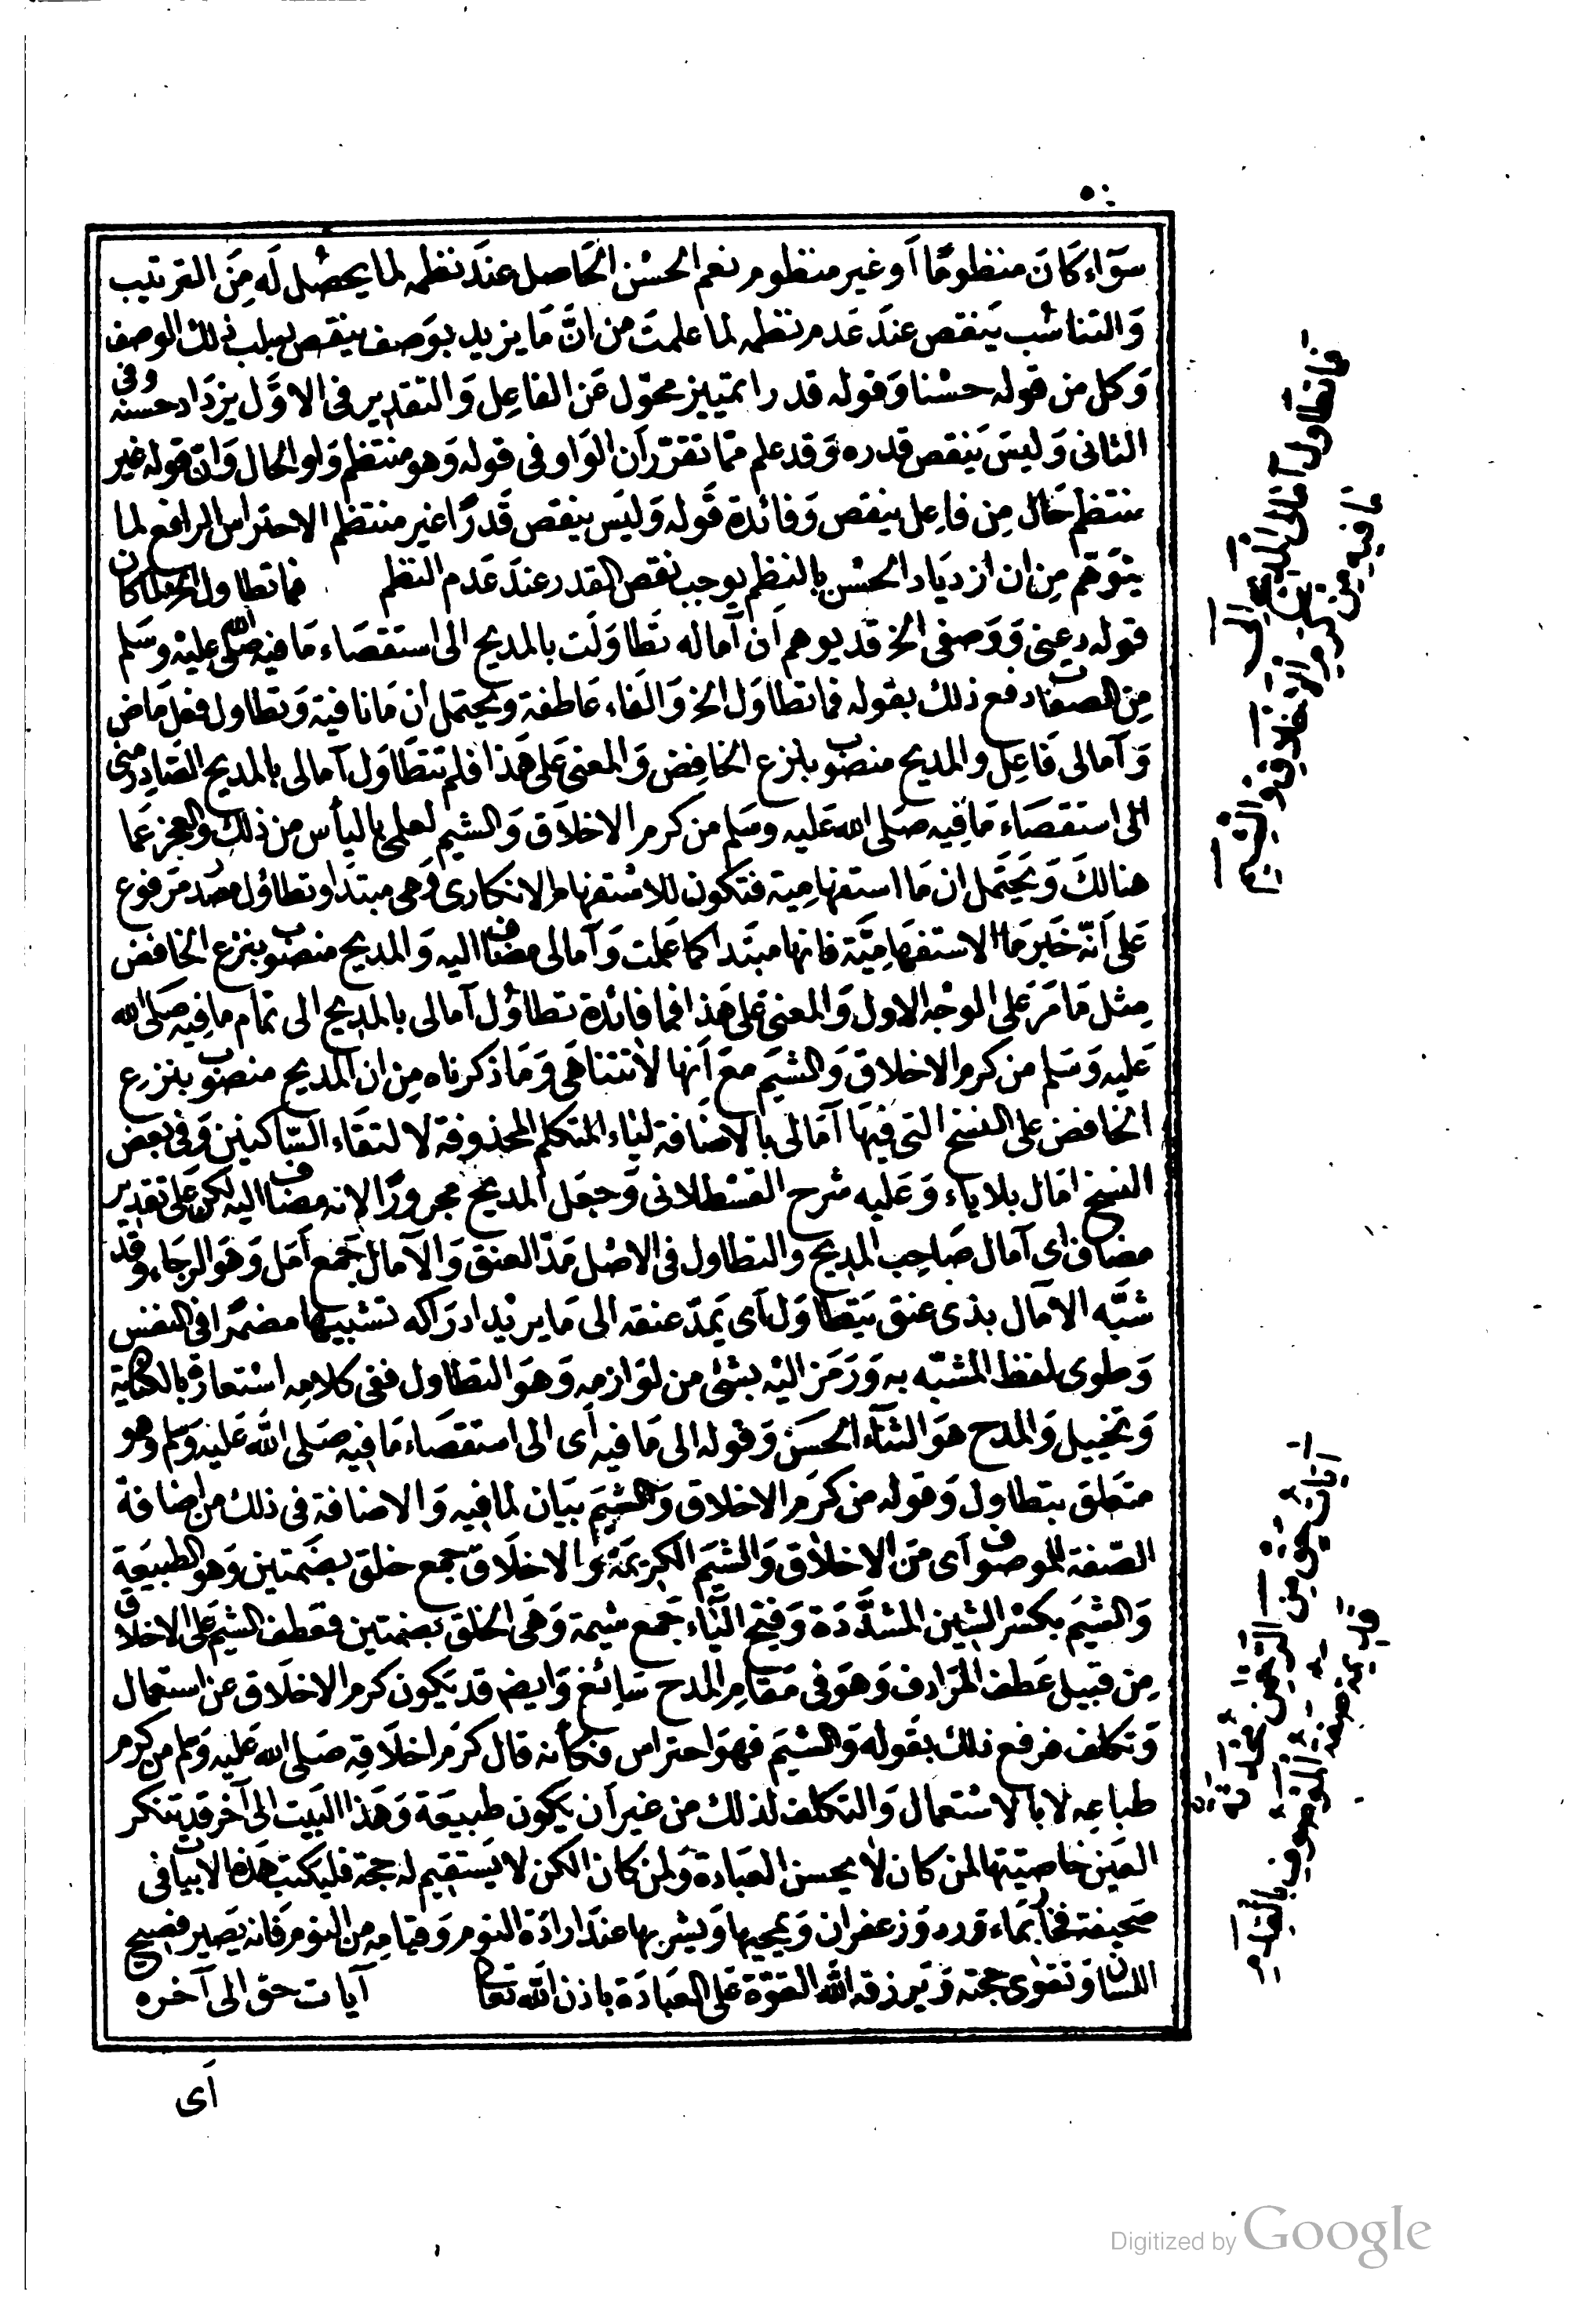 ٥٠
سواء كان منظوما أو غير منظوم نعم الحسن الحاصل عند نظمه لما يحصل له من الترتيب
والتناسب ينقص عند عدم نظمه لما علمت من ان ما يزيد بوصف ينقص بسلب ذلك الوصف
وكل من قوله حسنا وقوله قدرا تمييز محول عن الفاعل والتقدير في الاول يزداد حسنه وفي
الثاني وليس ينقص قدره وقد علم مما تقرر أن الواو في قوله وهو منتظم واو الحال وان قوله غير
منتظم حال من فاعل ينقص وفائدة قوله وليس ينقص قدرا غير منتظم الاحتراس الرافع لما
يتوهم من ان ازدياد الحسن بالنظم يوجب نقص القدر عند عدم النظم فما تطاول الخ لما كان
قوله دعني ووصفي الخ قد يوهم أن آماله تطاولت بالمديح الى استقصاء ما فيه صلى الله عليه وسلم
من الصفات دفع ذلك بقوله فما تطاول الخ والفاء عاطفة ويحتمل ان ما نافية وتطاول فعل ماض
وآمالى فاعل والمديح منصوب بنزع الخافض والمعنى على هذا فلم تتطاول آمالى بالمديح الصادر منى
الى استقصاء ما فيه صلى الله عليه وسلم من كرم الاخلاق والشيم لعلمى باليأس من ذلك والعجز عما
هنالك ويحتمل ان ما استفهامية فتكون للاستفهام الانكارى وهى مبتدا وتطاول مصدر مرفوع
على أنه خبر ما الاستفهامية فانها مبتدا كما علمت وآمالى مضاف اليه والمديح منصوب بنزع الخافض
مثل ما مر على الوجه الاول والمعنى على هذا فما فائدة تطاول آمالى بالمديح الى تمام ما فيه صلى الله
عليه وسلم من كرم الاخلاق والشيم مع أنها لا تتناهى وما ذكرناه من ان المديح منصوب بنزع
الخافض على النسخ التى فيها آمالى بالاضافة لياء المتكلم المحذوفة لالتقاء الساكنين وفى بعض
النسخ امال بلا ياء وعليه شرح القسطلانى وجعل المديح مجرورا لانه مضاف اليه لكن على تقدير
مضاف اى آمال صاحب المديح والتطاول فى الاصل مد العنق والآمال جمع أمل وهو الرجاء وقد
شبه الآمال بذى عنق يتطاول أى يمد عنقه الى ما يريد ادراكه تشبيها مضمرا فى النفس
وطوى لفظ المشبه به ورمز اليه بشئ من لوازمه وهو التطاول ففى كلامه استعارة بالكناية
وتخييل والمدح هو الثناء الحسن وقوله الى ما فيه أى الى استقصاء ما فيه صلى الله عليه وسلم وهو
متعلق بتطاول وقوله من كرم الاخلاق والشيم بيان لما فيه والاضافة فى ذلك من اضافة
الصفة للموصوف أى من الاخلاق والشيم الكريمة والاخلاق جمع خلق بضمتين وهو الطبيعة
والشيم بكسر الشين المشددة وفتح الياء جمع شيمة وهى الخلق بضمتين فعطف الشيم على الاخلاق
من قبيل عطف المرادف وهو فى مقام المدح سائغ وايضا قد يكون كرم الاخلاق عن استعمال
وتكلف فرفع ذلك بقوله والشيم فهو احتراس فكأنه قال كرم اخلاقه صلى الله عليه وسلم من كرم
طباعه لا بالاستعمال والتكلف لذلك من غير أن يكون طبيعة وهذا البيت الى آخر قد تنكر
العين خاصيتها لمن كان لا يحسن العبادة ولمن كان الكن لا يستقيم له حجة فليكتب هذه الابيات فى
صحيفة فخار بماء ورد وزعفران ويمحيها ويشربها عند ارادة النوم وقيامه من النوم فانه يصير فصيح
اللسان وتقوى حجته ويرزقه الله القوة على العبادة باذن الله تعالى آيات حق الى آخره
أى
فما تطاول آمالى المديح الى
ما فيه من كرم الاخلاق والشيم
آيات حق من الرحمن محدثة
قديمة صفة الموصوف بالقدم
Digitized by Google